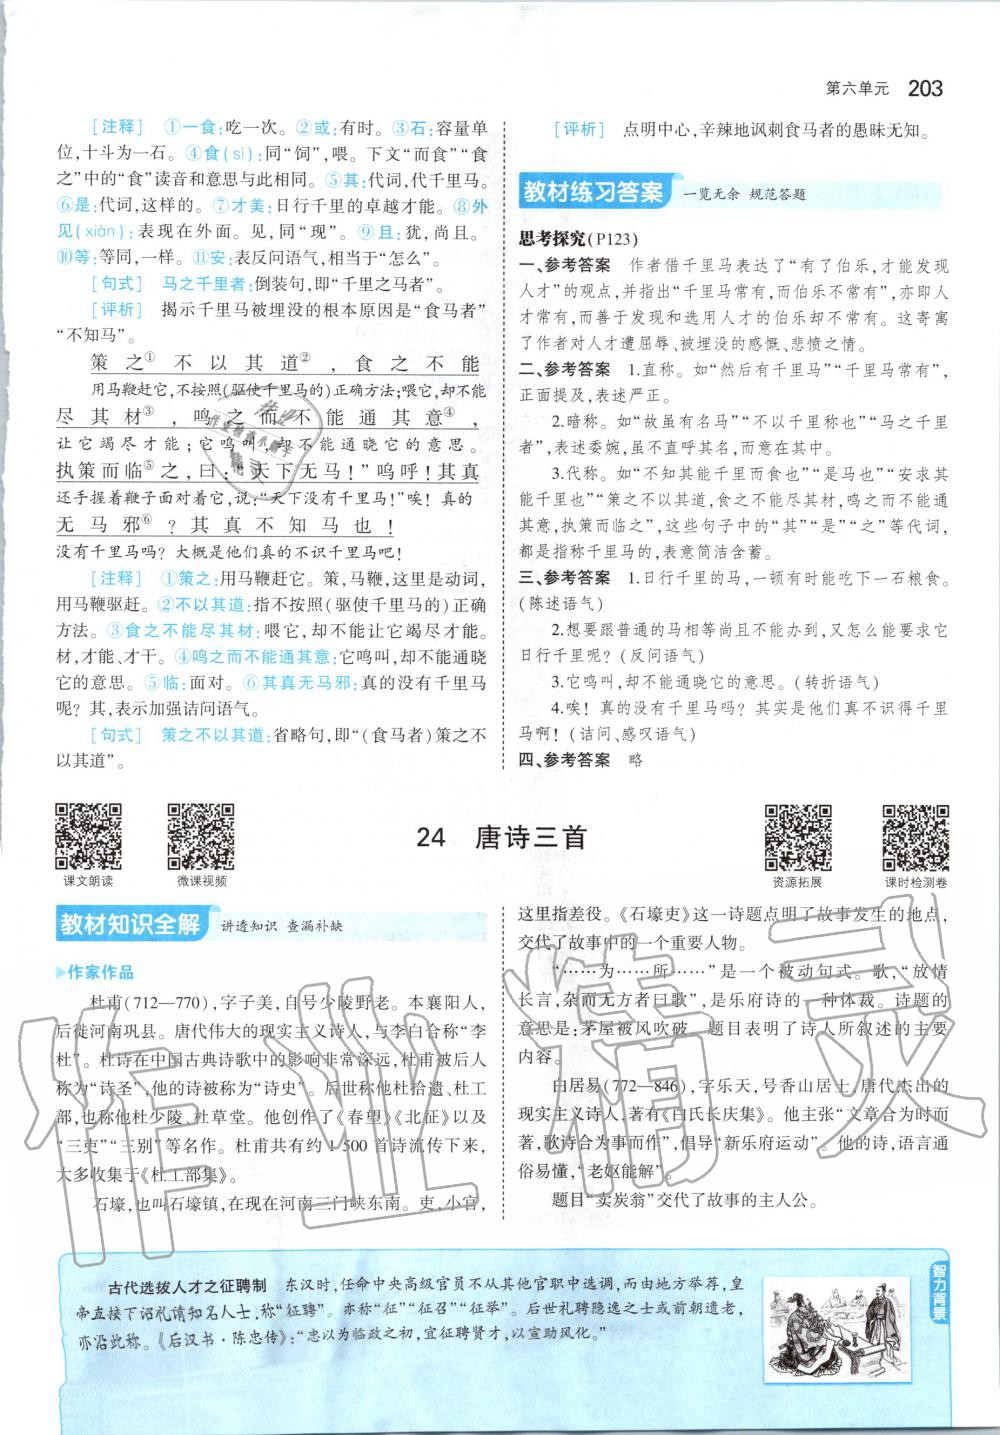 第六单元 203
[注释] ①一食:吃一次。②或:有时。③石:容量单
位,十斗为一石。④食(sì):同“饲”,喂。下文“而食”“食
之”中的“食”读音和意思与此相同。⑤其:代词,代千里马。
⑥是:代词,这样的。⑦才美:日行千里的卓越才能。⑧外
见(xiàn):表现在外面。见,同“现”。⑨且:犹,尚且。
⑩等:等同,一样。⑪安:表反问语气,相当于“怎么”。
[句式] 马之千里者:倒装句,即“千里之马者”。
[评析] 揭示千里马被埋没的根本原因是“食马者”
“不知马”。
策之①不以其道②,食之不能
用马鞭赶它,不按照(驱使千里马的)正确方法;喂它,却不能
尽其材③,鸣之而不能通其意④,
让它竭尽才能;它鸣叫,却不能通晓它的意思。
执策而临⑤之,曰:“天下无马!”呜呼!其真
还手握着鞭子面对着它,说:“天下没有千里马!”唉!真的
无马邪⑥?其真不知马也!
没有千里马吗?大概是他们真的不识千里马吧!
[注释] ①策之:用马鞭赶它。策,马鞭,这里是动词,
用马鞭驱赶。②不以其道:指不按照(驱使千里马的)正确
方法。③食之不能尽其材:喂它,却不能让它竭尽才能。
材,才能、才干。④鸣之而不能通其意:它鸣叫,却不能通晓
它的意思。⑤临:面对。⑥其真无马邪:真的没有千里马
呢?其,表示加强诘问语气。
[句式] 策之不以其道:省略句,即“(食马者)策之不
以其道”。
[评析] 点明中心,辛辣地讽刺食马者的愚昧无知。
教材练习答案 一览无余 规范答题
思考探究(P123)
一、参考答案 作者借千里马表达了“有了伯乐,才能发现
人才”的观点,并指出“千里马常有,而伯乐不常有”,亦即人
才常有,而善于发现和选用人才的伯乐却不常有。这寄寓
了作者对人才遭屈辱、被埋没的感慨、悲愤之情。
二、参考答案 1.直称。如“然后有千里马”“千里马常有”,
正面提及,表述严正。
2.暗称。如“故虽有名马”“不以千里称也”“马之千里
者”,表述委婉,虽不直呼其名,而意在其中。
3.代称。如“不知其能千里而食也”“是马也”“安求其
能千里也”“策之不以其道,食之不能尽其材,鸣之而不能通
其意,执策而临之”,这些句子中的“其”“是”“之”等代词,
都是指称千里马的,表意简洁含蓄。
三、参考答案 1.日行千里的马,一顿有时能吃下一石粮食。
(陈述语气)
2.想要跟普通的马相等尚且不能办到,又怎么能要求它
日行千里呢?(反问语气)
3.它鸣叫,却不能通晓它的意思。(转折语气)
4.唉!真的没有千里马吗?其实是他们真不识得千里
马啊!(诘问、感叹语气)
四、参考答案 略
课文朗读
微课视频
24 唐诗三首
资源拓展
课时检测卷
教材知识全解 讲透知识 查漏补缺
作家作品
杜甫(712—770),字子美,自号少陵野老。本襄阳人,
后徙河南巩县。唐代伟大的现实主义诗人,与李白合称“李
杜”。杜诗在中国古典诗歌中的影响非常深远,杜甫被后人
称为“诗圣”,他的诗被称为“诗史”。后世称他杜拾遗、杜工
部,也称他杜少陵、杜草堂。他创作了《春望》《北征》以及
“三吏”“三别”等名作。杜甫共有约1 500首诗流传下来,
大多收集于《杜工部集》。
石壕,也叫石壕镇,在现在河南三门峡东南。吏,小官,
这里指差役。《石壕吏》这一诗题点明了故事发生的地点,
交代了故事中的一个重要人物。
“……为……所……”是一个被动句式。歌,“放情
长言,杂而无方者曰歌”,是乐府诗的一种体裁。诗题的
意思是:茅屋被风吹破。题目表明了诗人所叙述的主要
内容。
白居易(772—846),字乐天,号香山居士,唐代杰出的
现实主义诗人,著有《白氏长庆集》。他主张“文章合为时而
著,歌诗合为事而作”,倡导“新乐府运动”。他的诗,语言通
俗易懂,“老妪能解”。
题目“卖炭翁”交代了故事的主人公。
古代选拔人才之征聘制 东汉时,任命中央高级官员不从其他官职中选调,而由地方举荐,皇
帝直接下诏礼请知名人士,称“征聘”。亦称“征”“征召”“征举”。后世礼聘隐逸之士或前朝遗老,
亦沿此称。《后汉书·陈忠传》:“忠以为临政之初,宜征聘贤才,以宣助风化。”
智力背景
作业精灵